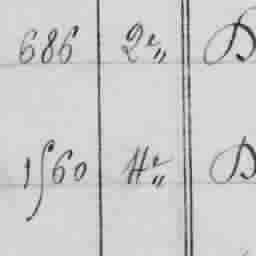 686 2e„ D
1560 4e„ D